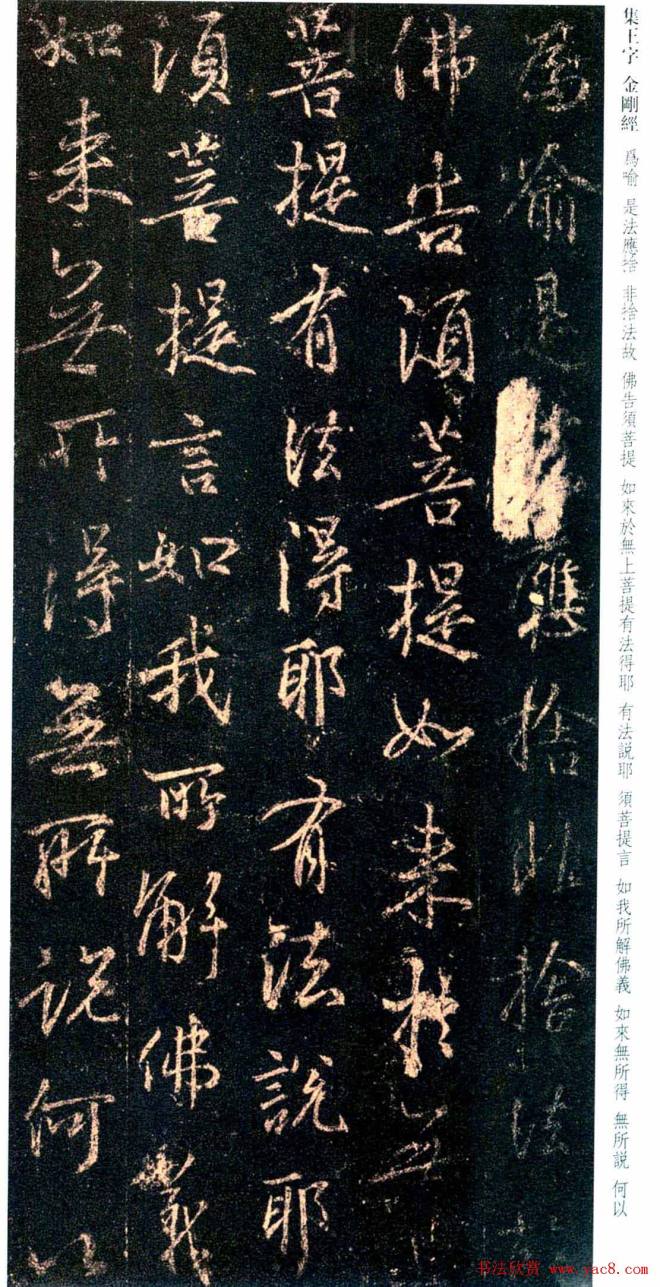 集王字 金剛經 爲喻 是法應捨 非捨法故 佛告須菩提 如來於無上菩提有法得耶 有法説耶 須菩提言 如我所解佛義 如來無所得 無所説 何以
爲喻是應捨非捨法故
佛告須菩提如來於無上
菩提有法得耶有法說耶
須菩提言如我所解佛義
如來無所得無所説何以
书法欣赏 www.yac8.com